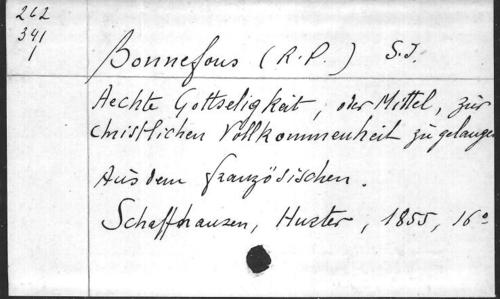 262
341
1
Bonnefous (R.P.) S.J.
Aechte Gottseligkeit, oder Mittel, zur
christlichen Vollkommenheit zu gelangen
Aus dem französischen.
Schaffhausen, Hurter, 1855, 16°